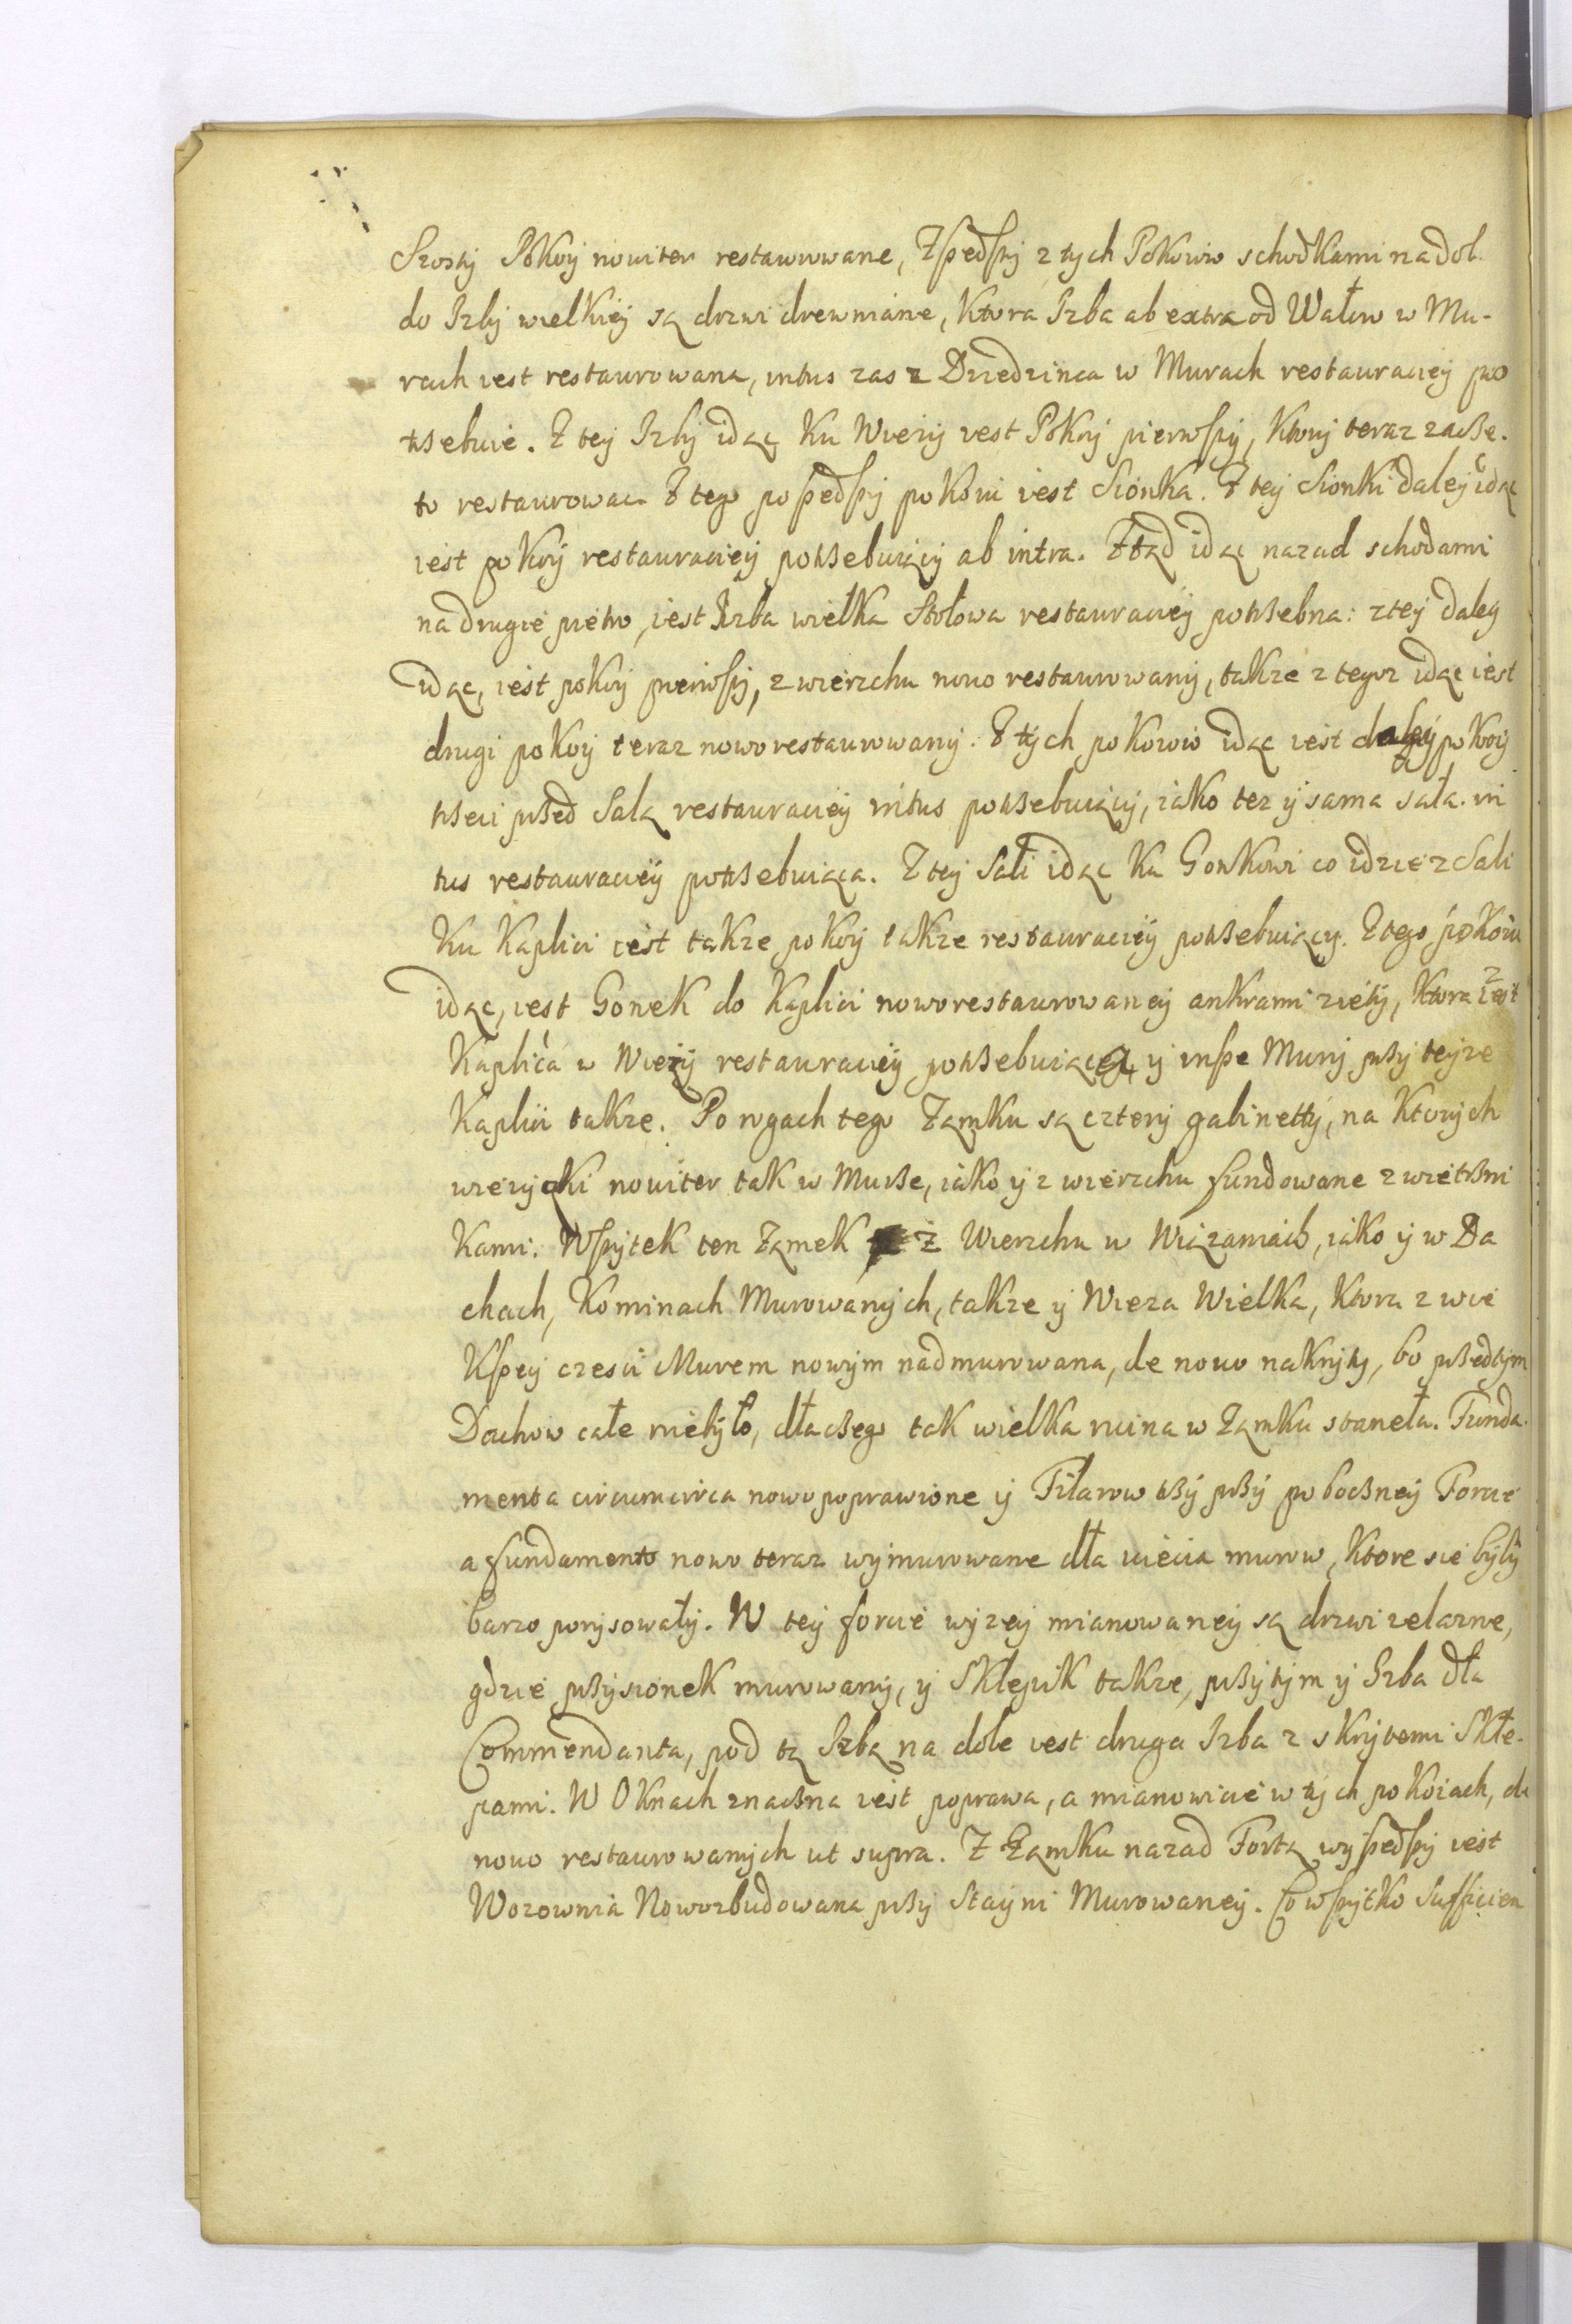 Szosty Pokoy nouiter restaurowane, Zszedszy z tych Pokoiow schodkami na dol
do Izby wielkiey są drzwi drewniane, Ktora Izba ab extra od Wałow w Mu-
rach iest restaurowana, intus zas z Dziedzinca w Murach restauraciey po
trzebuie. Z tey Izby idąc Ku Wiezy iest Pokoy pierwszy, Ktory teraz zacze-
to restaurowac Z tego poszedszy pokoiu iest Sionka. Z tey Sionki daley idąc
iest pokoy restauraciey potrzebuiący ab intra. Ztąd idąc nazad schodami
na drugie pietro, iest Izba wielka Stołowa restauraciey potrzebna: z tey daley
idąc, iest pokoy pierwszy, z wierzchu nouo restaurowany, takze z tegoz idąc iest
drugi pokoy teraz noworestaurowany. Z tych pokoiow idąc iest daley pokoy
trzeci przed Salą restauraciey intus potrzebuiący, iako tez y sama sala in
tus restauraciey potrzebuiąca. Z tey Sali idąc Ku Gankowi co idzie z Sali
Ku Kaplici iest takze pokoy takze restauraciey potrzebuiący. Z tego pokoiu
idąc, iest Gonek do Kaplici noworestaurowaney ankrami ziety, Ktora iest
Kaplica w Wieży restauraciey potrzebuiącą y insze Mury przy teyze
Kaplici takze. Po rogach tego Zamku są cztery gabinetty, na Ktorych
wiezyczki nouiter tak w Murze, iako y z wierzchu fundowane z wietrzni
Kami. Wszytek ten Zamek z Wierzchu w Wiązaniach, iako y w Da
chach, Kominach Murowanych, takze y Wieza Wielka, Ktora z wie
Kszey czesci Murem nowym nadmurowana, de nouo nakryty, bo przedtym
Dachow całe niebyło, dlaczego tak wielka ruina w Zamku staneła. Funda
menta circumcirca nowo poprawione y Filarow trzy przy poboczney Forcie
a fundamento nowo teraz wymurowane dla uiecia murow, Ktore sie były
barzo porysowały. W tey forcie wyzey mianowaney są drzwi zelazne,
gdzie przysionek murowany, y Sklepik takze, przytym y Izba dla
Commendanta, pod tą Izbą na dole iest druga Izba z skrytemi Skle-
pami. W Oknach znaczna iest poprawa, a mianowicie w tych pokoiach, de
nouo restaurowanych ut supra. Z Zamku nazad Fortą wyszedszy iest
Wozownia Nowozbudowana przy Stayni Murowaney. Co wszytko Sufficien